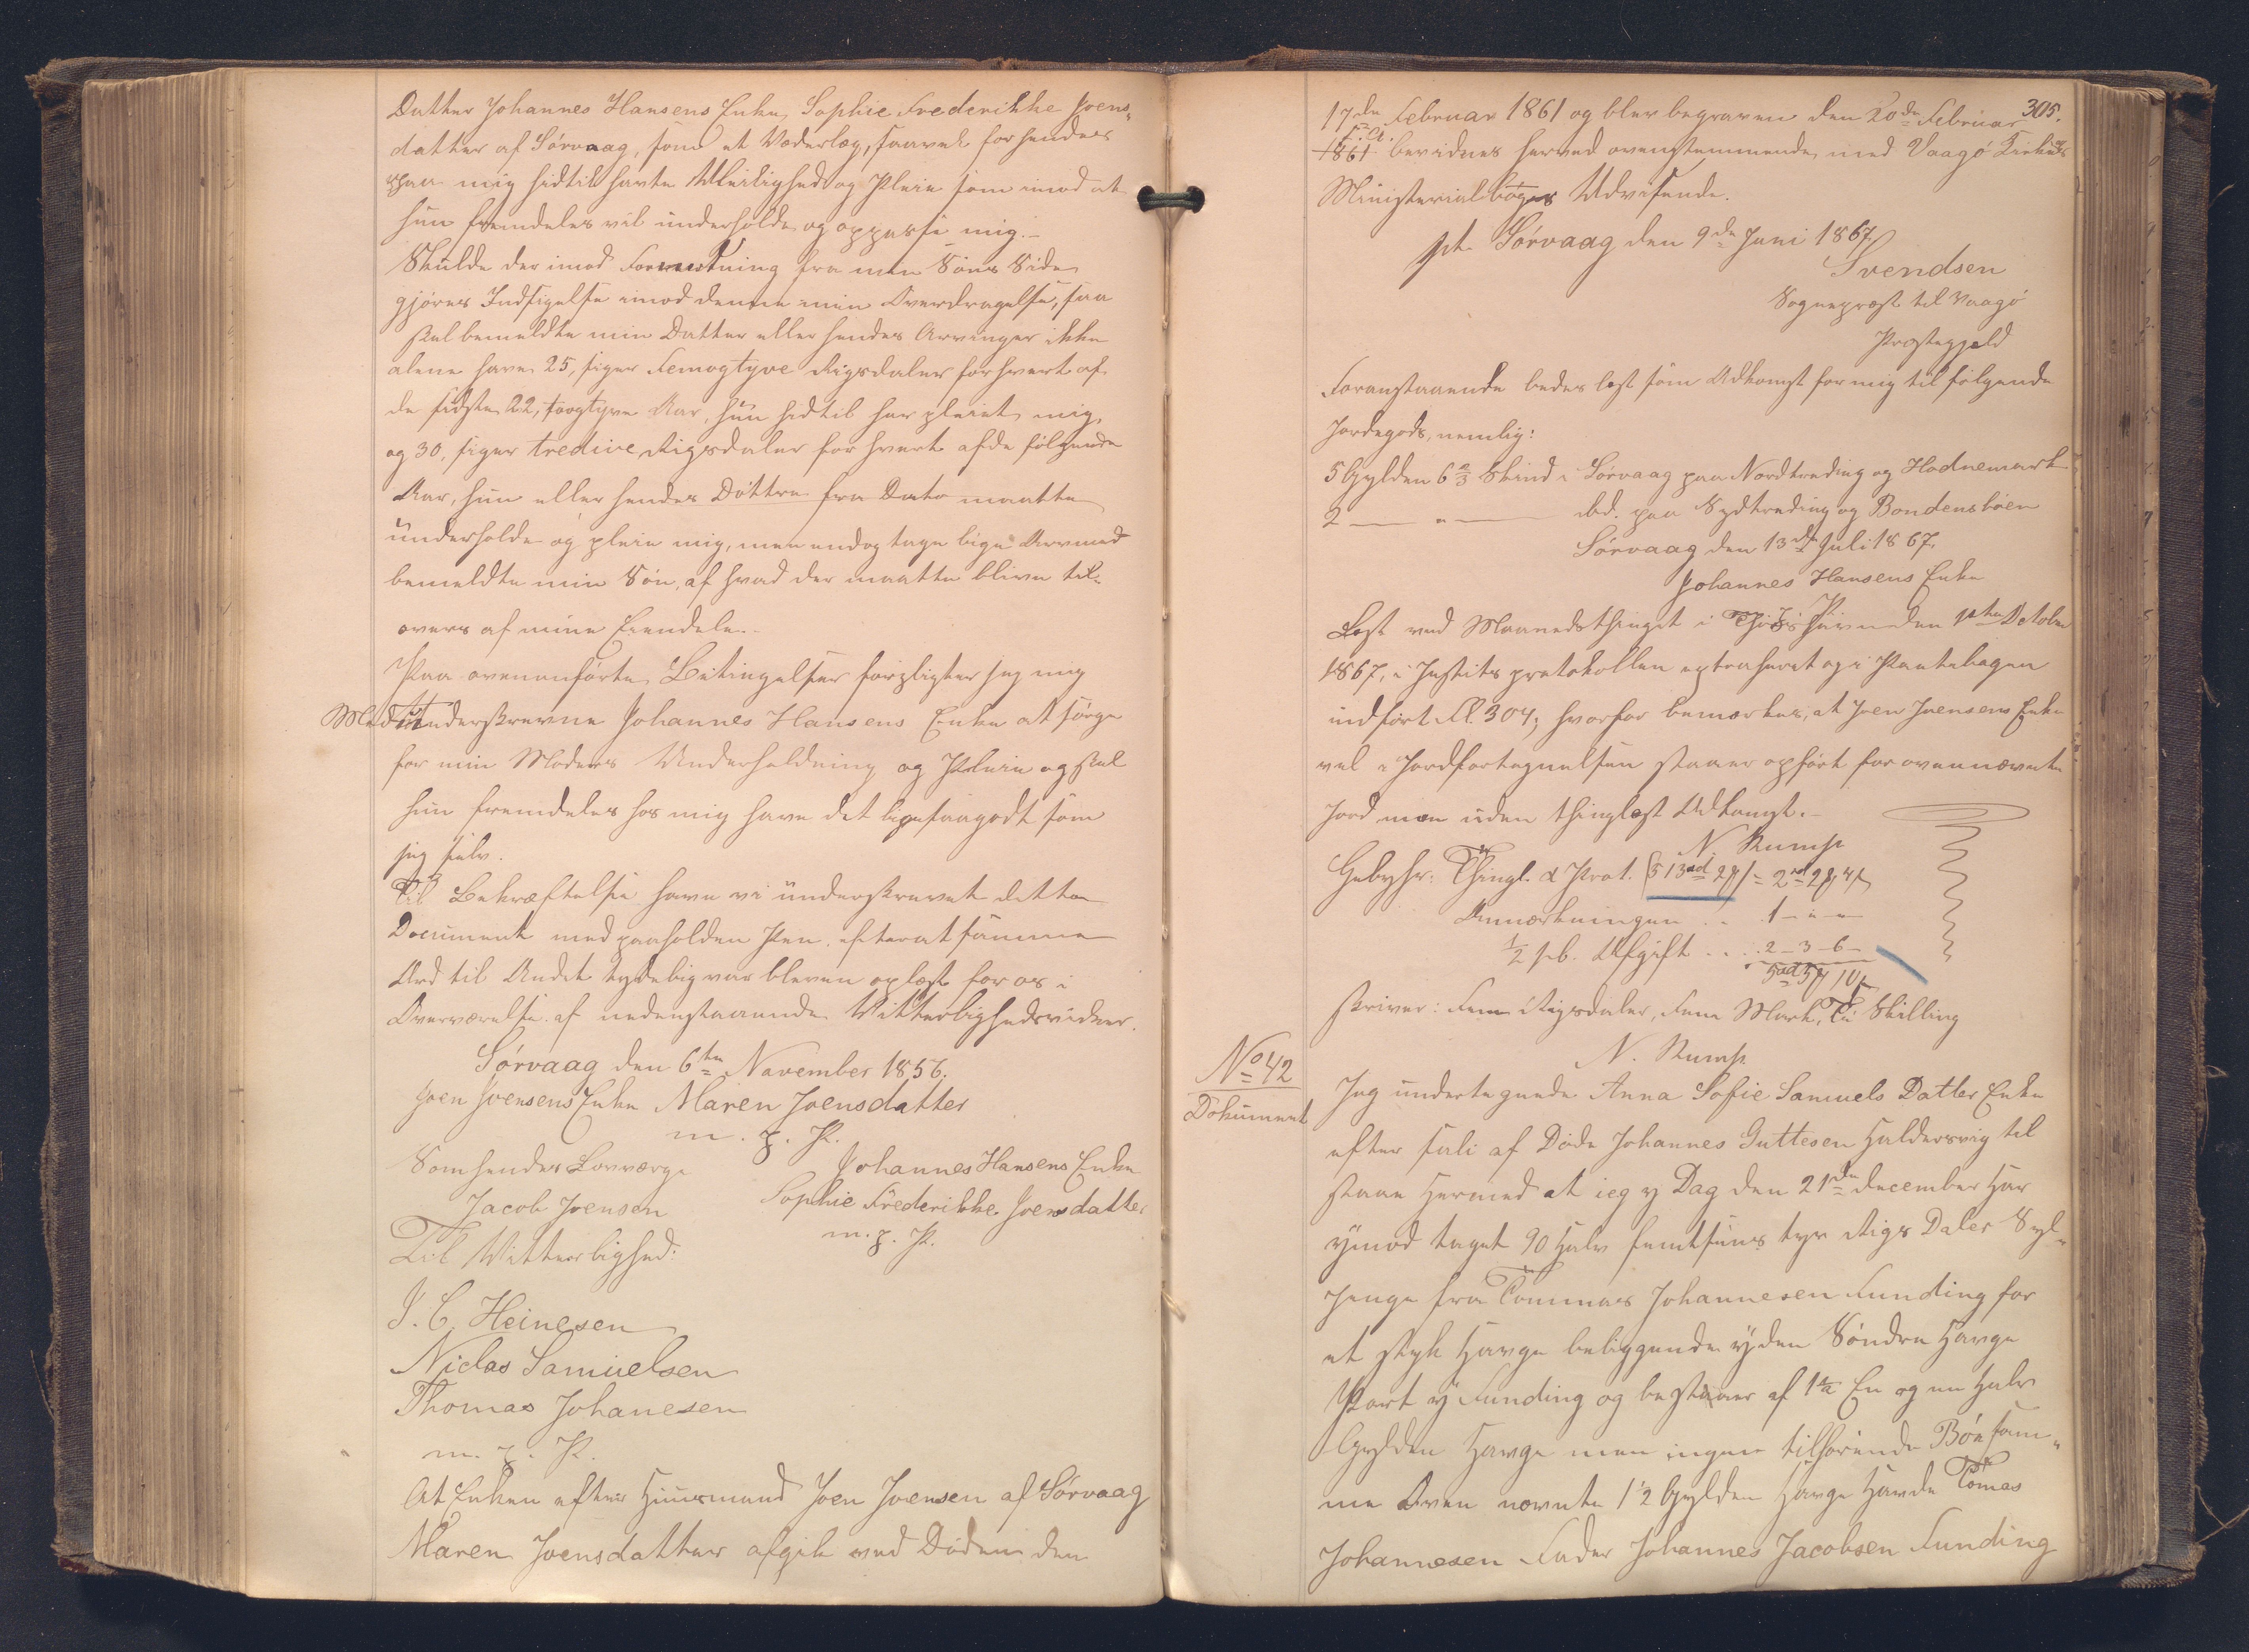 Datter Johannes Hansens Enke, Sophie Frederikke Joens-
datter af Sørvaag, som et Vederlag, saavel for hendes
paa mig hidtil havte Uleilighed og Pleie som imod at
hun fremdeles vil underholde og oppasse mig.-
Skulde der imod Formodning fra min Søns Side
gjøres Indsigelse imod denne min Overdragelse, saa
skal bemeldte min Datter eller hendes Arvinger ikke
alene have 25, siger Femogtyve Rigsdaler for hvert af
de sidste 22, toogtyve Aar, hun hidtil har pleiet mig,
og 30, siger tredive Rigsdaler for hvert af de følgende
Aar, hun eller hendes Døttre fra Dato maatte
underholde og pleie mig, men endog tage lige Arv med
bemeldte min Søn, af hvad der maatte blive til-
overs af mine Eiendele.-
Paa ovenanførte Betingelser forpligter jeg mig
Medunderskrevne Johannes Hansens Enke at sørge
for min Moders Underholdning og Pleie og skal
hun fremdeles hos mig have det ligesaagodt som
jeg selv.
Til Bekræftelse have vi underskrevet dette
Document med paaholden Pen, efterat samme
Ord til Andet tydelig var bleven oplæst for os i
Overværelse af nedenstaaende Vitterlighedsvidner.
Sørvaag den 6te November 1856.
Joen Joensens Enke Maren Joensdatter
m. p. P.
Som hendes Lavværge
Jacob Joensen
Johannes Hansens Enke
Sophie Frederikke Joensdatter
m. p. P.
Til Vitterlighed:
J. C. Heinesen
Niclas Samuelsen
Thomas Johanesen
m. p. P.
At Enken efter Huusmand Joen Joensen af Sørvaag
Maren Joensdatter afgik ved Døden den
305.
17de Februar 1861 og blev begraven den 20de Februar
1861 bevidnes herved overstemmende med Vaagø Kirkes
Ministerialbogs Udvisende.
pt. Sørvaag den 9de Juni 1867
Svendsen
Sognepræst til Vaagø
Præstegjeld
Foranstaaende bedes læst som Adkomst for mig til følgende
Jordegods, nemlig:
5 Gylden 6 2/3 Skind i Sørvaag paa Nordtreding og Hodnemark
2 — " — ibd. paa Sydtreding og Bondensbøen
Sørvaag den 13de Juli 1867.
Johannes Hansens Enke
Læst ved Maanedsthinget i Thorshavn den 1ste October
1867, i Justitsprotokollen extraheret og i Pantebogen
indført Fl. 304, hvorfor bemærkes, at Joen Joensens Enke
vel i Jordfortegnelsen staaer opført for ovennævnte
Jord men uden thinglæst Adkomst.-
N. Rump
Gebyhr: Thingl. & Prot. = 2rd 2 4
Anmærkningen .. 1 - " - "
1/2 pCt. Afgift .... 2 - 3 - 6 -
5rd 5 10
skriver: Fem Rigsdaler, Fem Mark, Ti Skilling
N. Rump
No 42
Dokument
Jeg undertegnede Anna Sofie Samuels Datter Enke
efter sali af Døde Johannes Guttesen Haldersvig til
staar Hermed at ieg y Dag den 21de december Har
ymod taget 90 Halv femtsins tyve Rigs Daler Søl-
penge fra Tommas Johannesen Funding for
et styk Hauge beliggende yden Søndre Hauge
Part y Funding og bestaaer af 1 1/2 En og en Halv
Gylden Hauge men ingen tilhørende Bøe sam-
me Oven nævnte 1 1/2 Gylden Hauge Havde Tomas
Johannesen Fader Johannes Jacobsen Funding